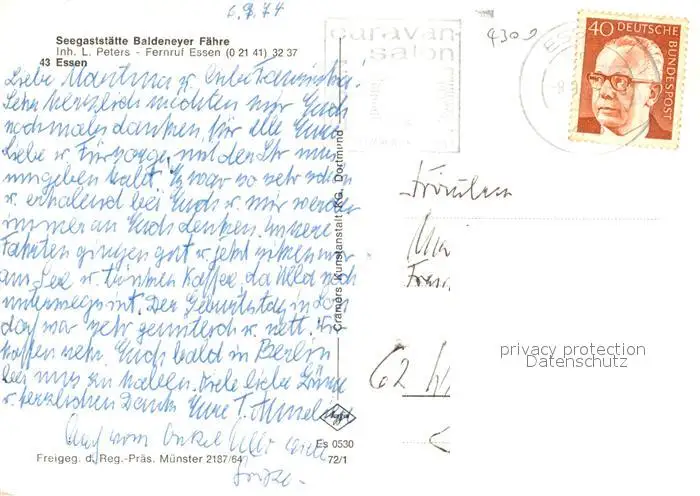 6.9.74
Seegaststätte Baldeneyer Fähre
Inh. L. Peters - Fernruf Essen (0 21 41) 32 37
43 Essen
Liebe Martina u.
Sehr herzlich möchten wir Euch
nochmals danken, für alle Eure
Liebe u. Fürsorge, mit der Ihr uns
umgeben habt. Es war so sehr schön
u. erholend bei Euch u. wir werden
immer an Euch denken. Unsere
Fahrten gingen gut u. jetzt sitzen wir
am See u. trinken Kaffee, da noch
unterwegs ist. Der Geburtstag in
dorf war sehr u. nett. Wir
hoffen sehr, Euch bald in Berlin
bei uns zu haben. Viele liebe Grüsse
u. herzlichen Dank Eure T.
Auch vom Onkel viele
Grüße.
Freigeg. d. Reg.-Präs. Münster 2187/64
Es 0530
72/1
Cramers Kunstanstalt KG, Dortmund
caravan
salon
4300
ES
40 DEUTSCHE
BUNDESPOST
Fräulein
62
privacy protection
Datenschutz